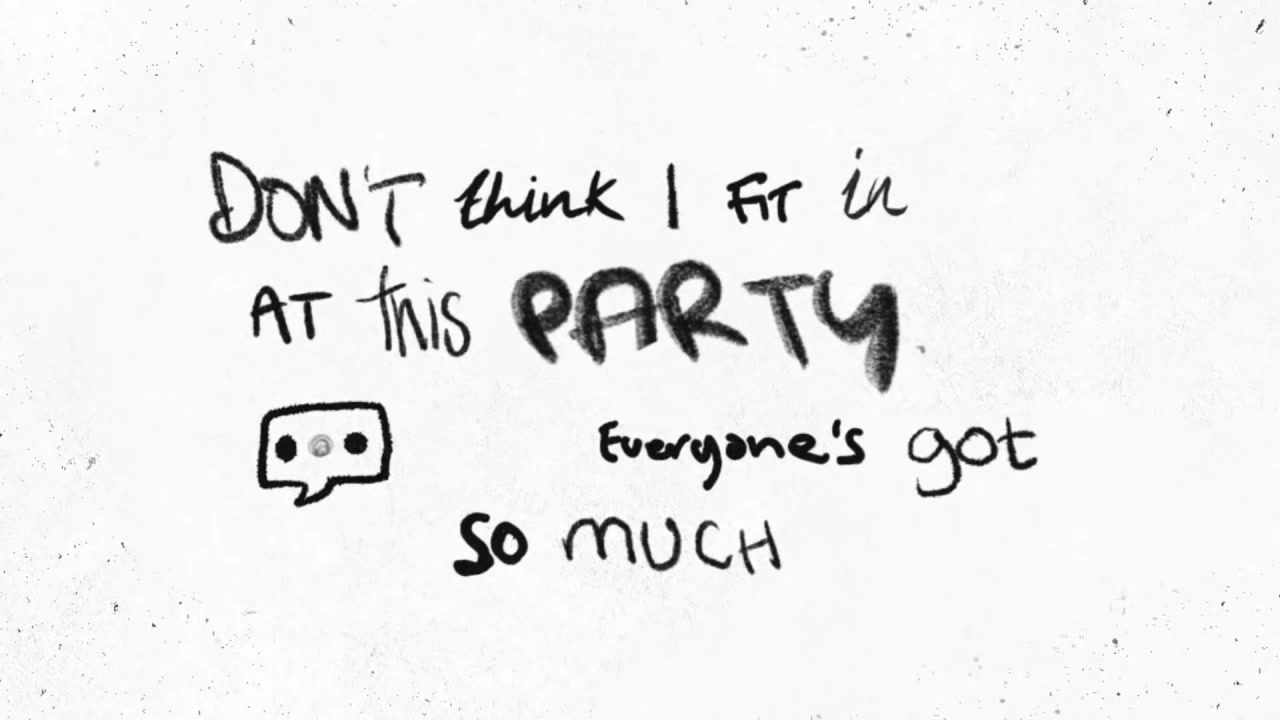 DON'T think I FiT in
AT this PARTY
Everyone's got
So MUCH